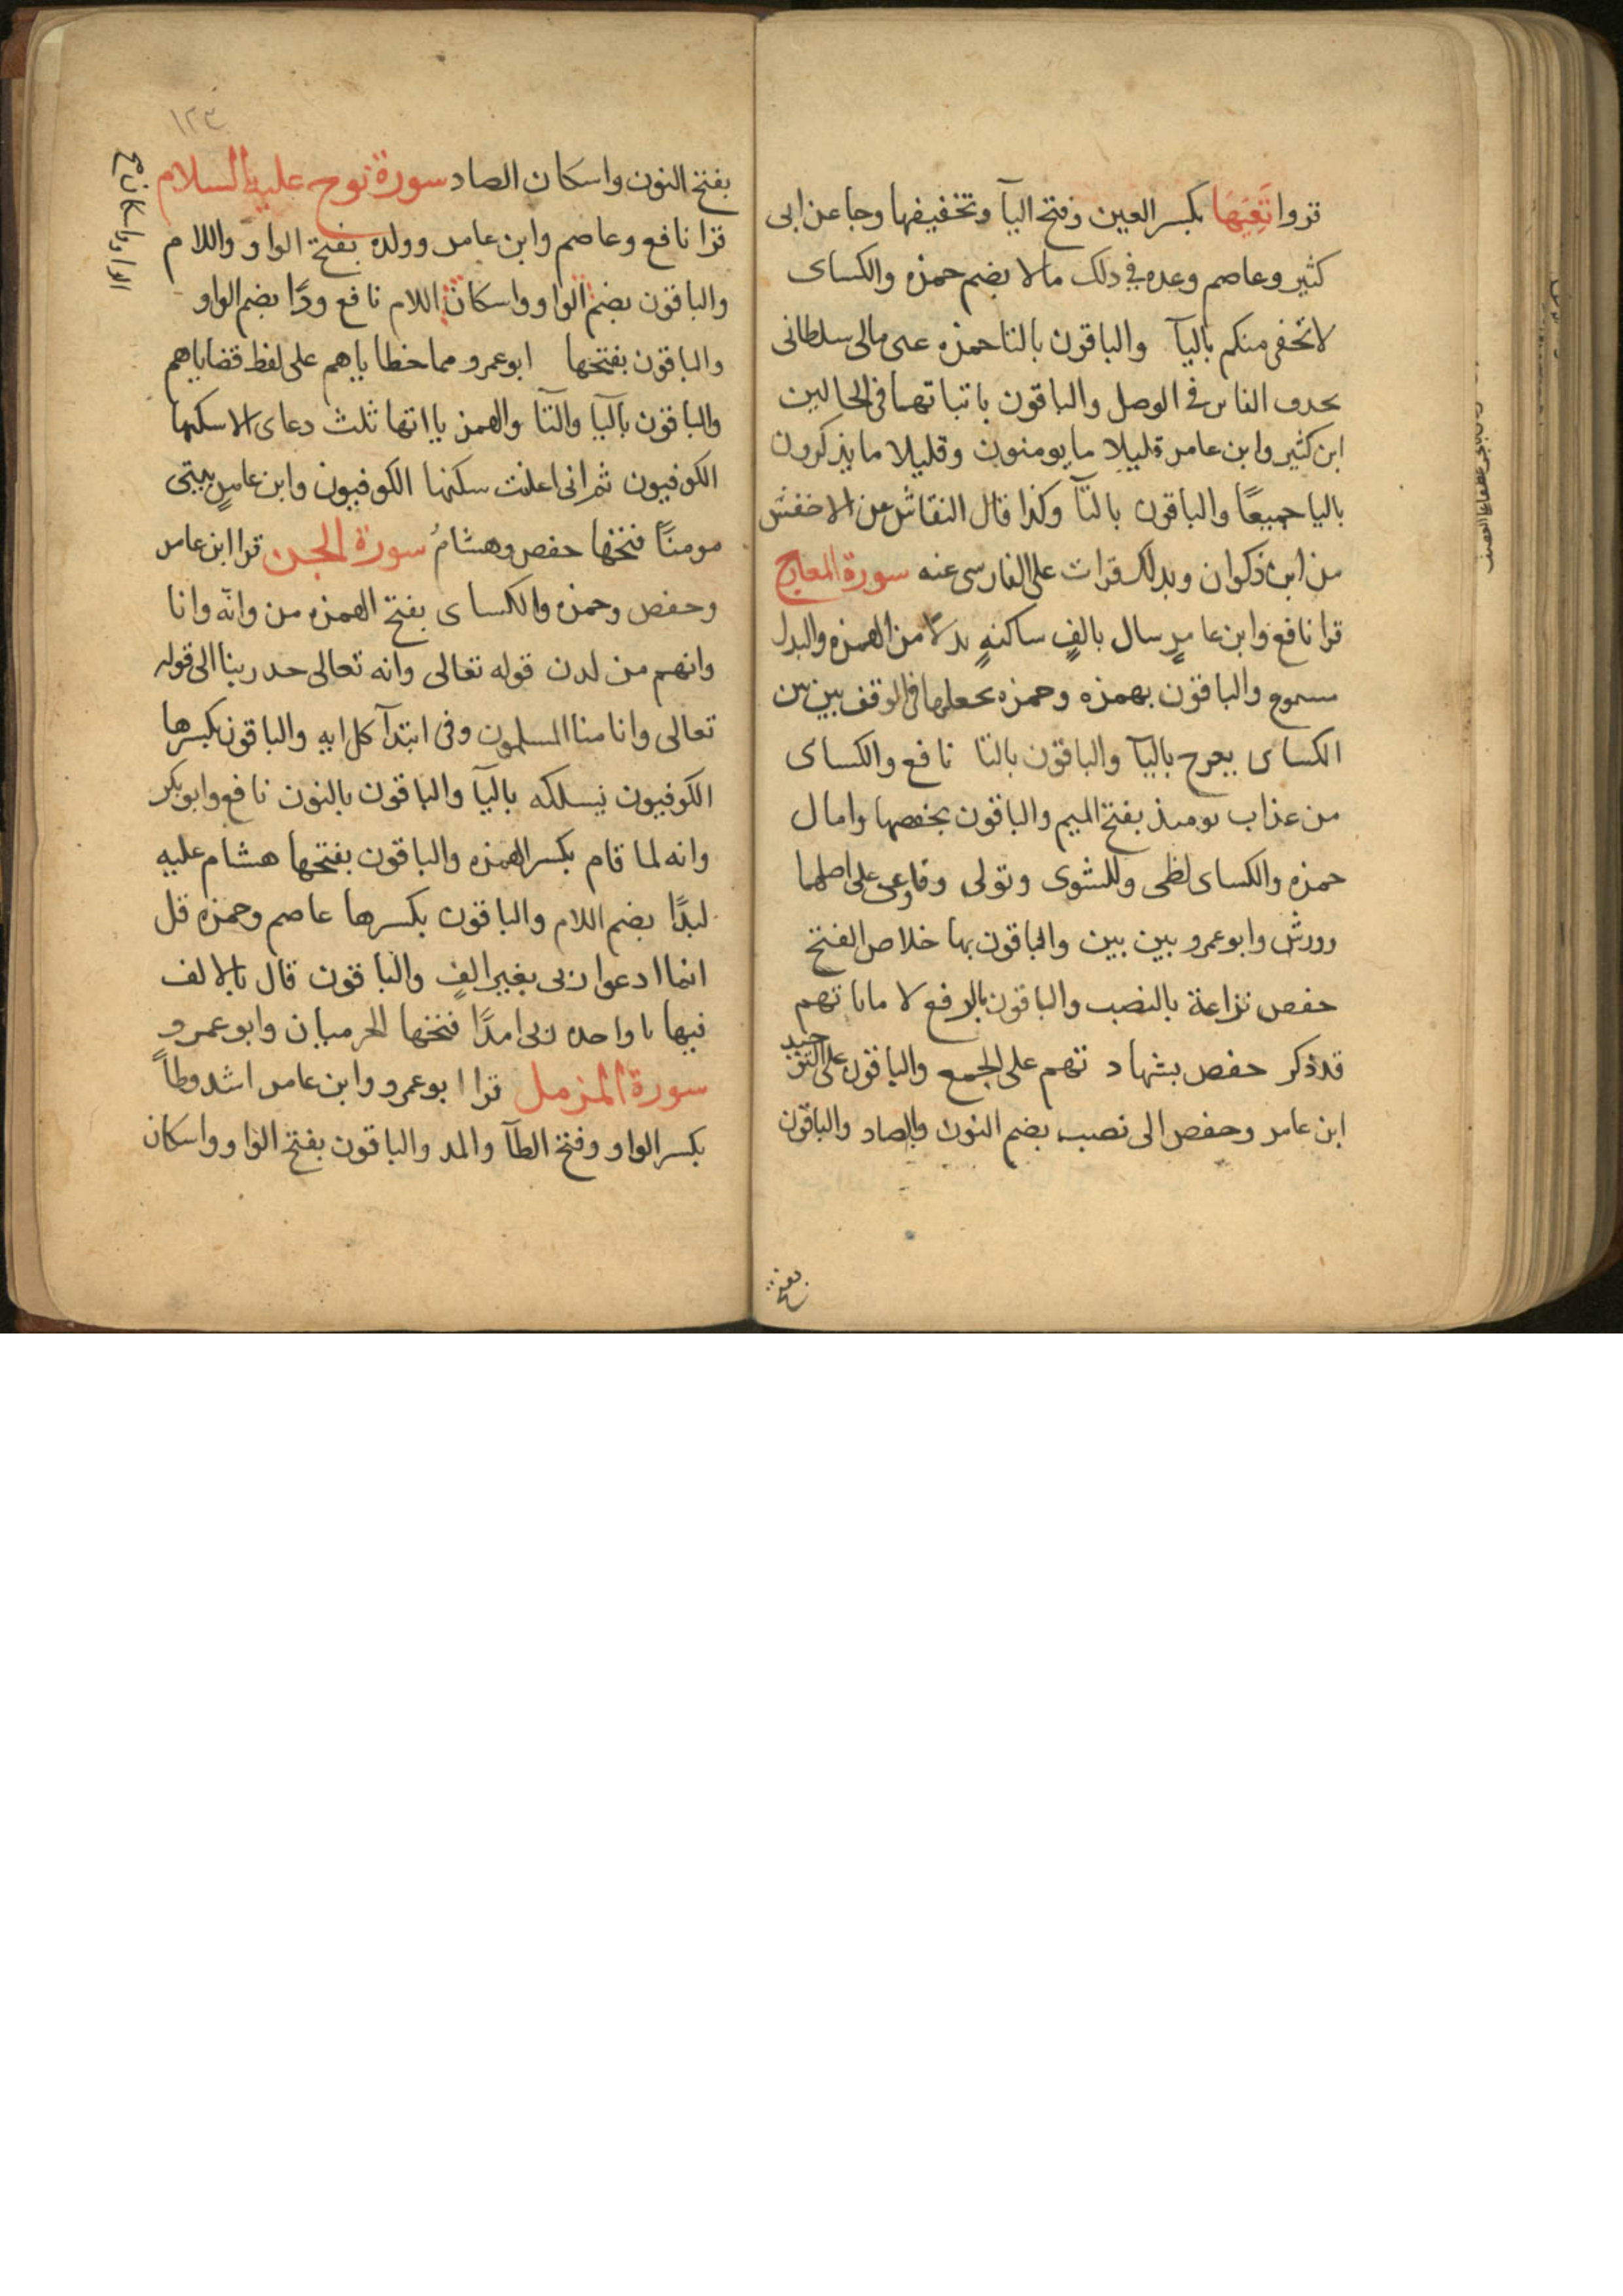 قروا تَعِيَهَا بكسر العين وفتح اليآ وتخفيفها وجا عن ابى
كثير وعاصم وعده فى دلك مالا يضم حمزه والكساى
لا تخفى منكم باليآ والباقون بالتا حمزه عنى مالى سلطانى
بحدف الهاى فى الوصل والباقون باتباتهما فى الحالين
ابن كثير وابن عامر قليلا ما يومنون وقليلا ما يذكرون
باليا جميعًا والباقون بالتآ وكذا قال النقاش عن الاخفش
من ابن ذكوان وبدلك قرات على الفارسى عنه سورة المعارج
قرا نافع وابن عامرٍ سال بالفٍ ساكنهٍ بدلًا من الهمزه والبدل
مسموع والباقون بهمزه وحمزه يجعلها فى الوقف بين بين
الكساى يعرج باليآ والباقون بالتا نافع والكساى
من عذاب يوميذ بفتح الميم والباقون بخفصها وامال
حمزه والكساى لظى وللشوى وتولى وفاوعى على اصلهما
وورش وابو عمرو بين بين والباقون بها خلاص الفتح
حفص نزاعة بالنصب والباقون بالرفع لا ماناتهم
قد ذكر حفص بشهاد تهم على الجمع والباقون على التوحيد
ابن عامر وحفص الى نصب بضم النون والصاد والباقون
بفتح
١٢٣
بفتح النون واسكان الصاد سورة نوح عليه السلام
قرا نافع وعاصم وابن عامر وولده بفتح الواو واللام
والباقون بضم الواو واسكان اللام نافع ودًا بضم الواو
والباقون بفتحها ابو عمرو مما خطاياهم على لفظ قضاياهم
والباقون باليا والتآ والهمز يااتها ثلث دعاى الا سكنها
الكوفيون ثم انى اعلنت سكنها الكوفيون وابن عامرٍ بيتى
مومنًا فتحها حفص وهشامُ سورة الجن قرا ابن عامر
وحفص وحمزه والكساى بفتح الهمزه من وانّه وانا
وانهم من لدن قوله تعالى وانه تعالى جد ربنا الى قوله
تعالى وانا منا المسلمون وفى ابتدآ كل ايه والباقون بكسرها
الكوفيون يسلكه باليآ والباقون بالنون نافع وابو بكر
وانه لما قام بكسر الهمزه والباقون بفتحها هشام عليه
لبدًا بضم اللام والباقون بكسرها عاصم وحمزه قل
انما ادعوا ربى بغير الفٍ والباقون قال بالالف
فيها يا واحده ربى امدًا فتحها الحرميان وابو عمرو
سورة المزمل قرا ابو عمرو وابن عامر اشد وطاً
بكسر الواو وفتح الطآ والمد والباقون بفتح الواو واسكان